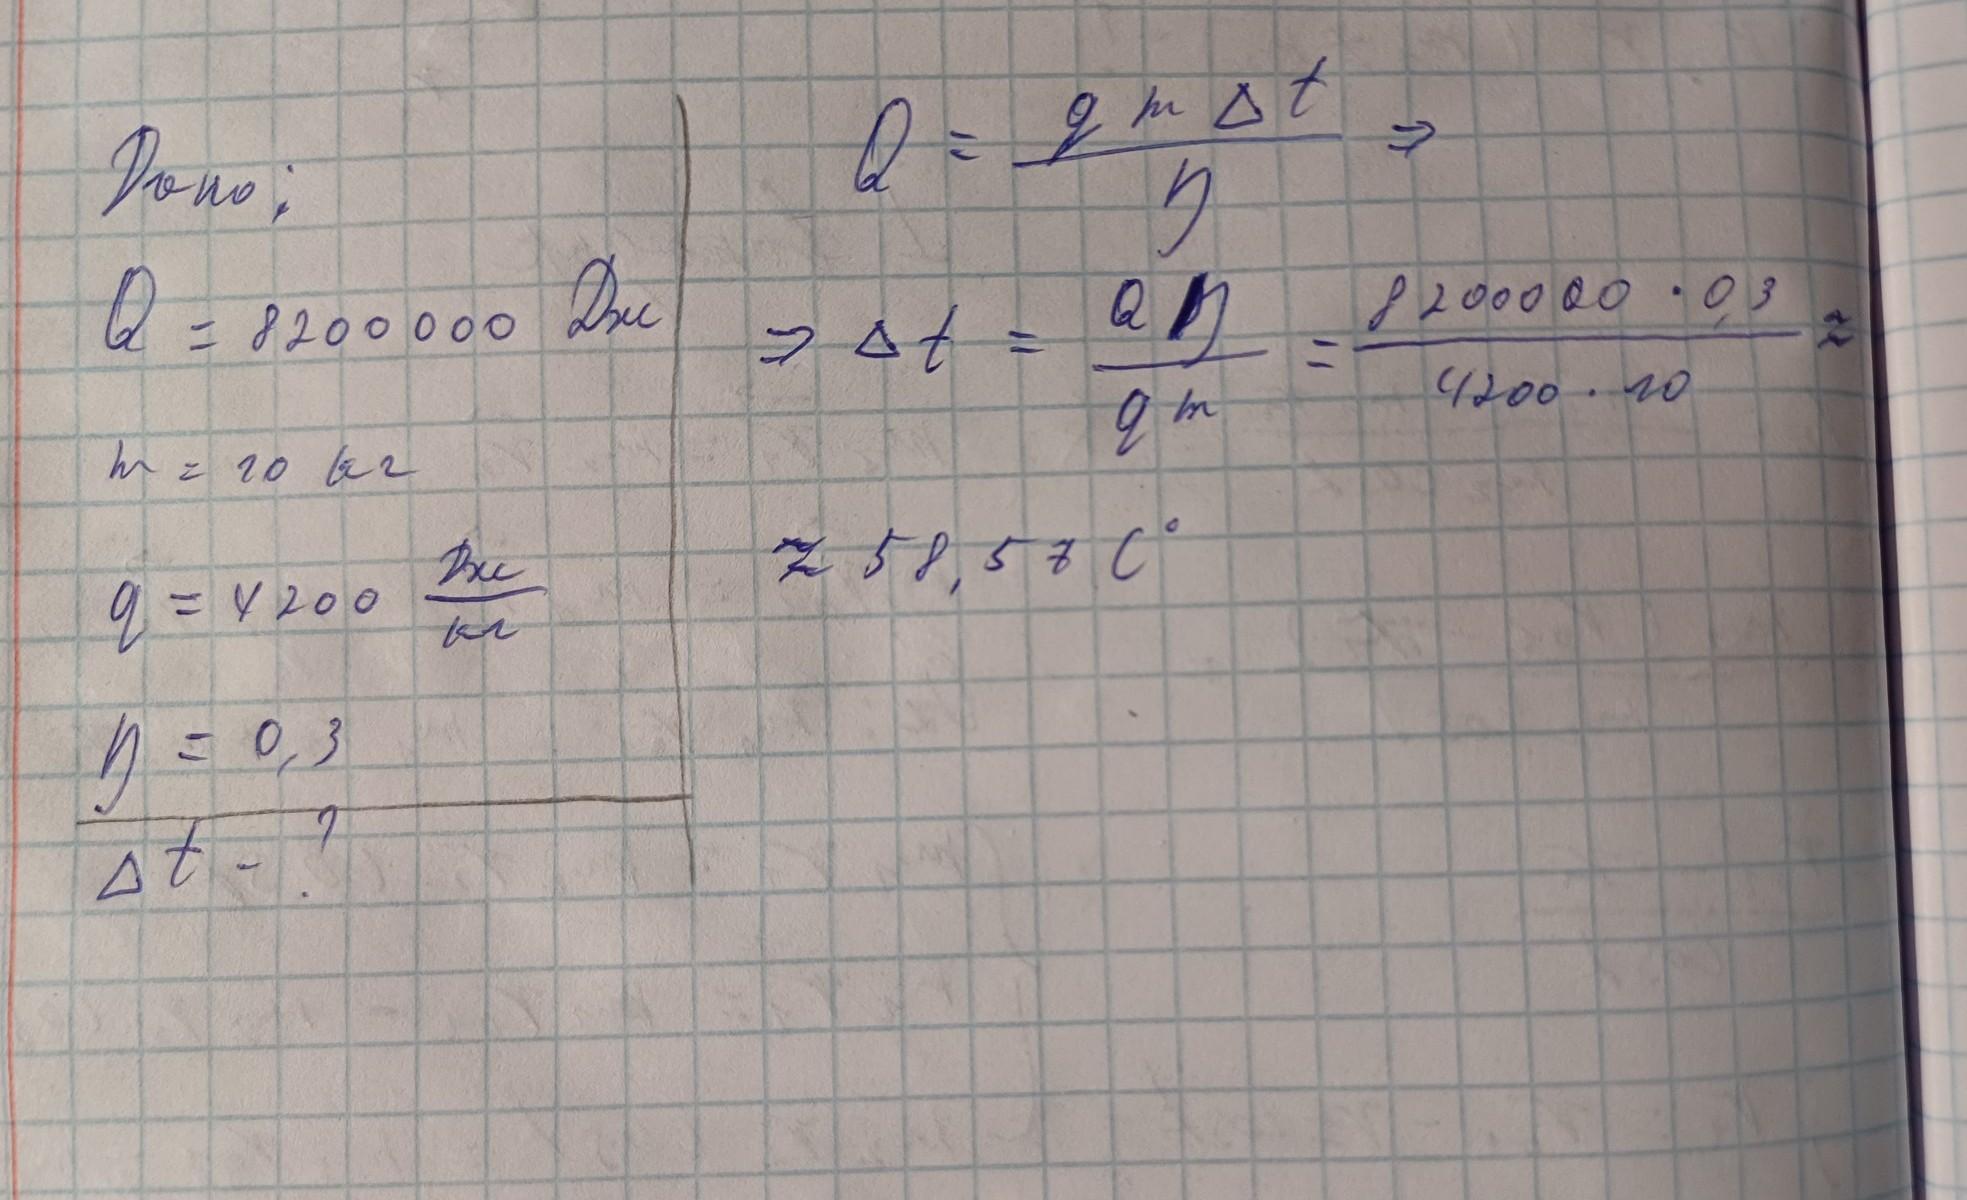 Дано:
Q = 8200000 Дж
m = 10 кг
q = 4200 Дж/кг
η = 0,3
Δt - ?
Q = q m Δt / η ⇒
⇒ Δt = Q η / q m = 8200000 · 0,3 / 4200 · 10 ≈
≈ 58,57 C°